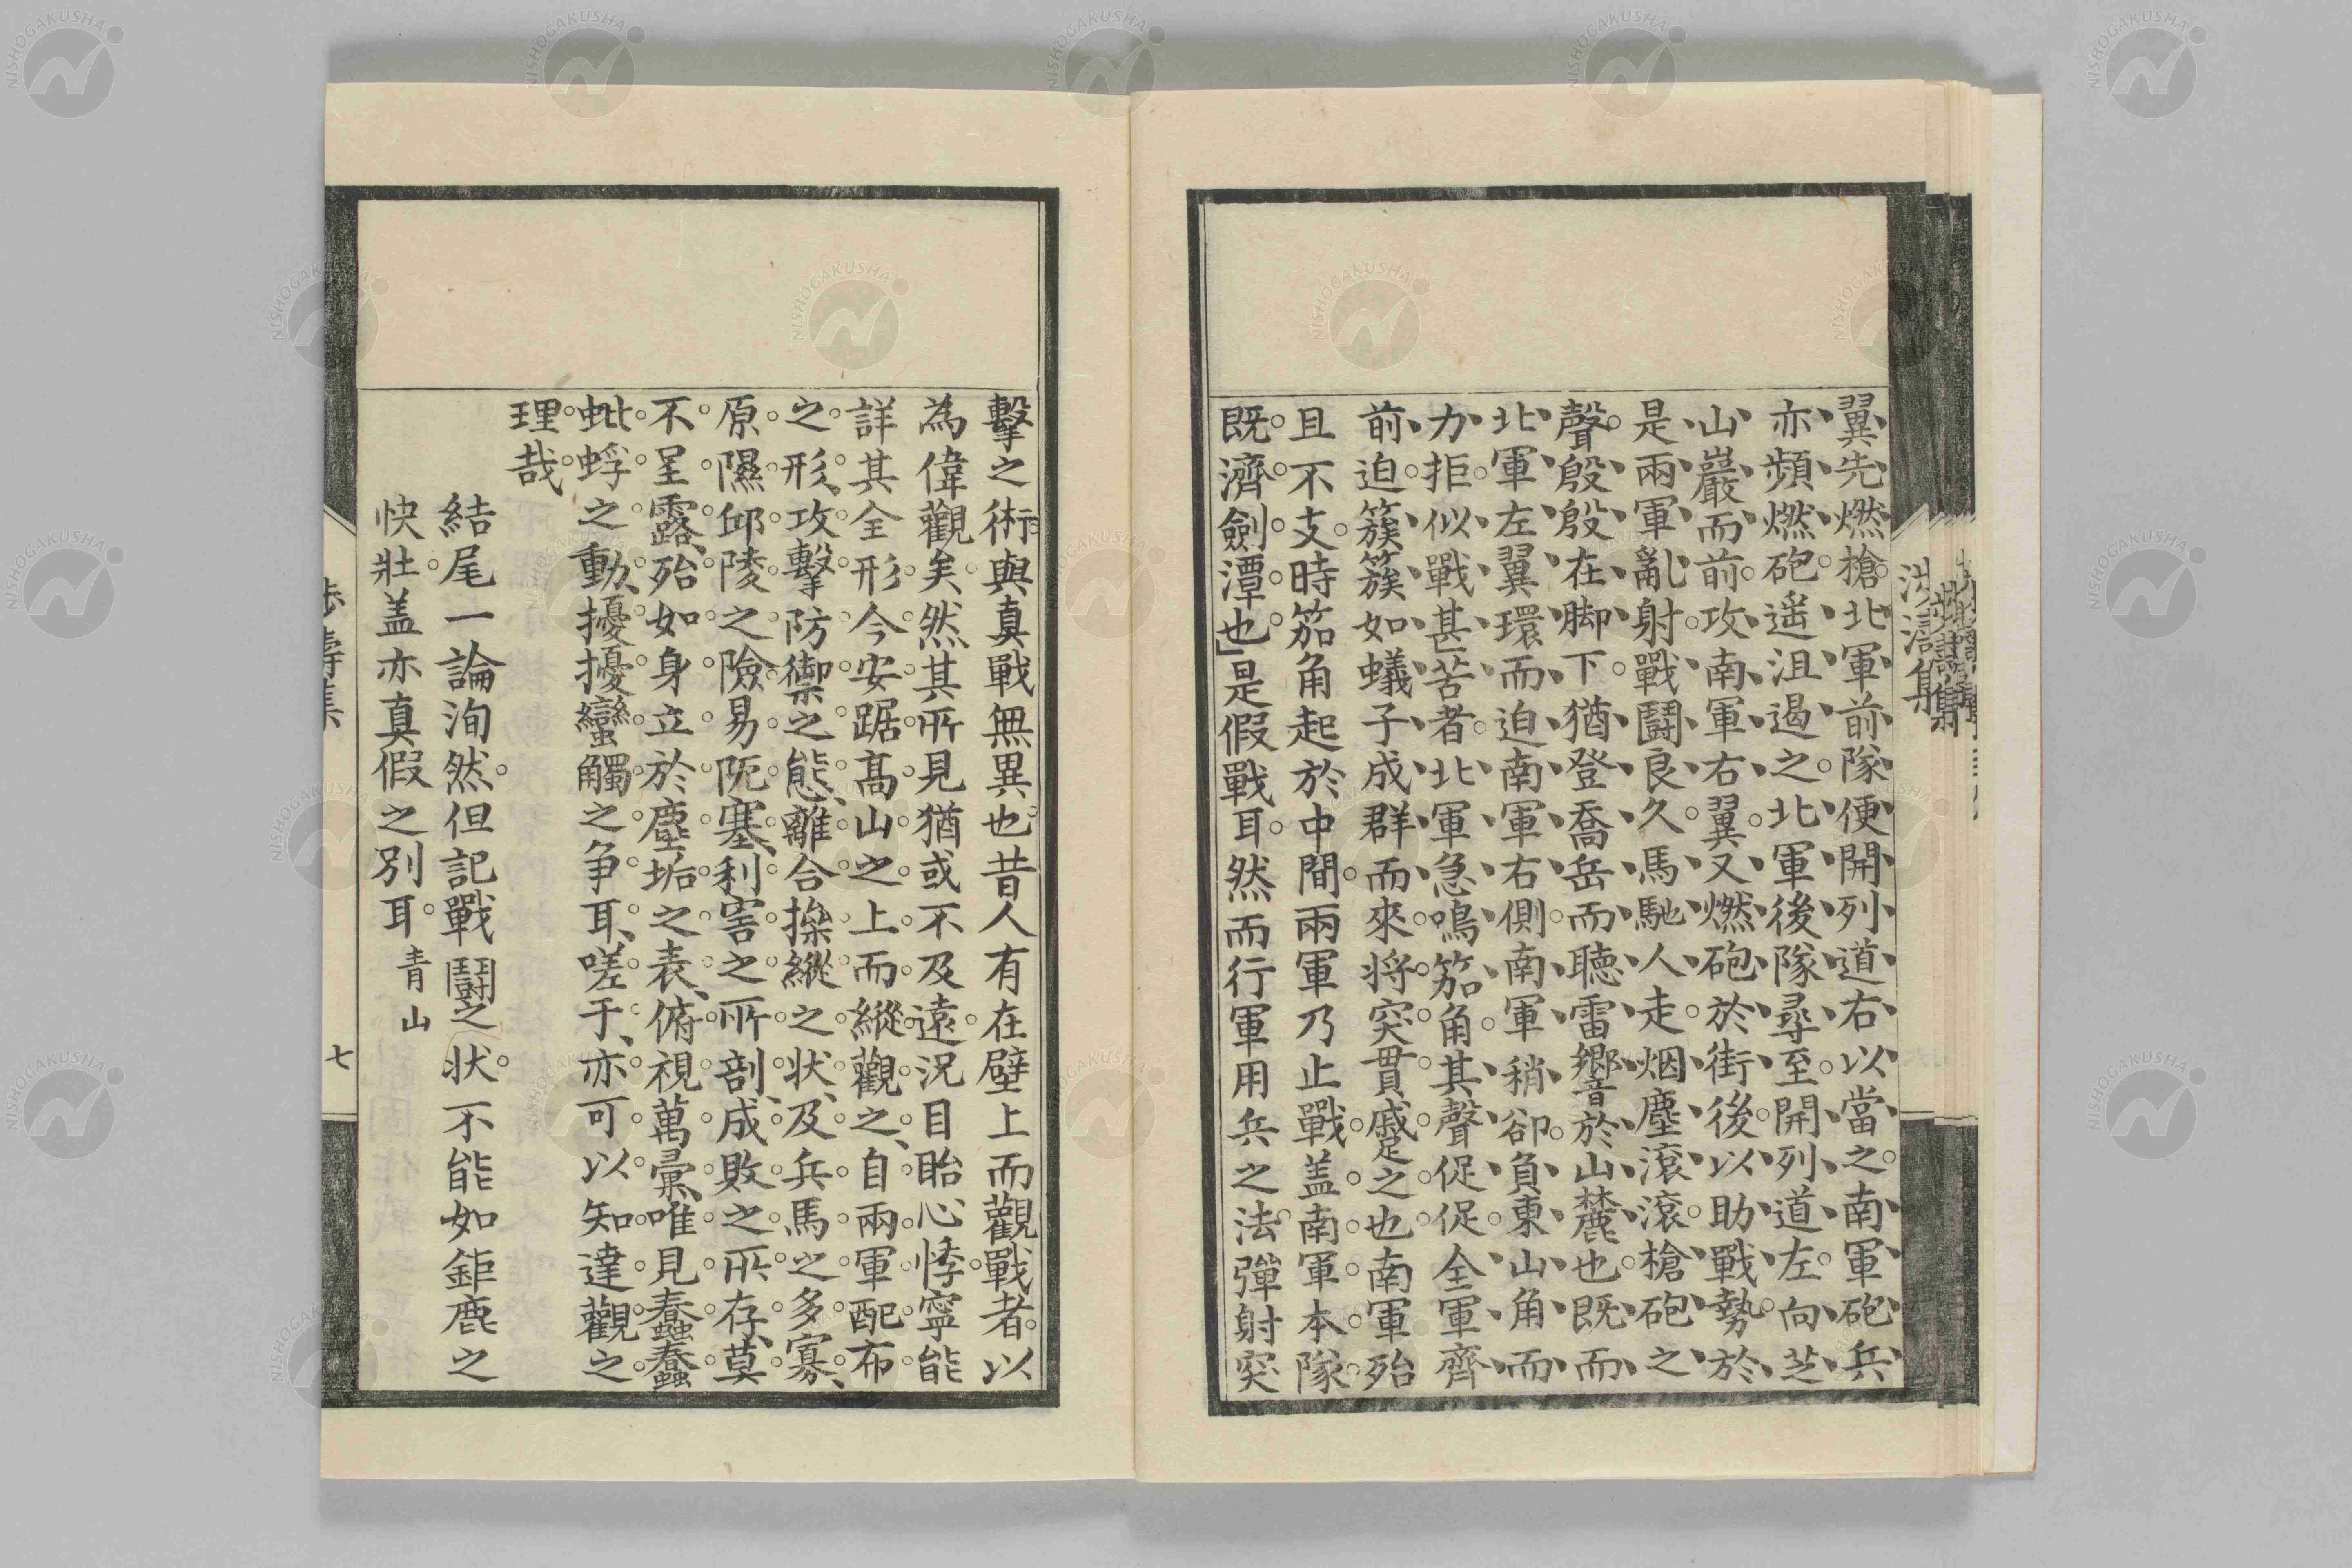 翼先燃槍北軍前隊便開列道右以當之南軍砲兵
亦頻燃砲遥沮遏之北軍後隊尋至開列道左向芝
山巖而前攻南軍右翼又燃砲於街後以助戰勢於
是兩軍亂射戰鬪良久馬馳人走烟塵滾滾槍砲之
聲殷殷在脚下猶登喬岳而聽雷響於山麓也既而
北軍左翼環而迫南軍右側南軍稍卻負東山角而
力拒似戰甚苦者北軍急鳴笳角其聲促促全軍齊
前迫簇簇如蟻子成群而來将突貫蹙之也南軍殆
且不支時笳角起於中間兩軍乃止戰盖南軍本隊
既濟劍潭也」是假戰耳然而行軍用兵之法彈射突
擊之術與真戰無異也昔人有在壁上而觀戰者以
為偉觀矣然其所見猶或不及遠況目眙心悸寧能
詳其全形今安踞高山之上而縱觀之自兩軍配布
之形攻擊防禦之態離合操縱之状及兵馬之多寡
原隰邱陵之險易阨塞利害之所剖成敗之所存莫
不呈露殆如身立於塵垢之表俯視萬彙唯見蠢蠢
蚍蜉之動擾擾蠻觸之争耳嗟于亦可以知達觀之
理哉
結尾一論洵然但記戰鬪之状不能如鉅鹿之
快壯盖亦真假之別耳 青山
七
NISHOGAKUSHA